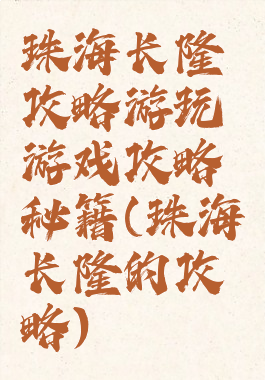 珠海长隆
攻略游玩
游戏攻略
秘籍(珠海
长隆的攻
略)